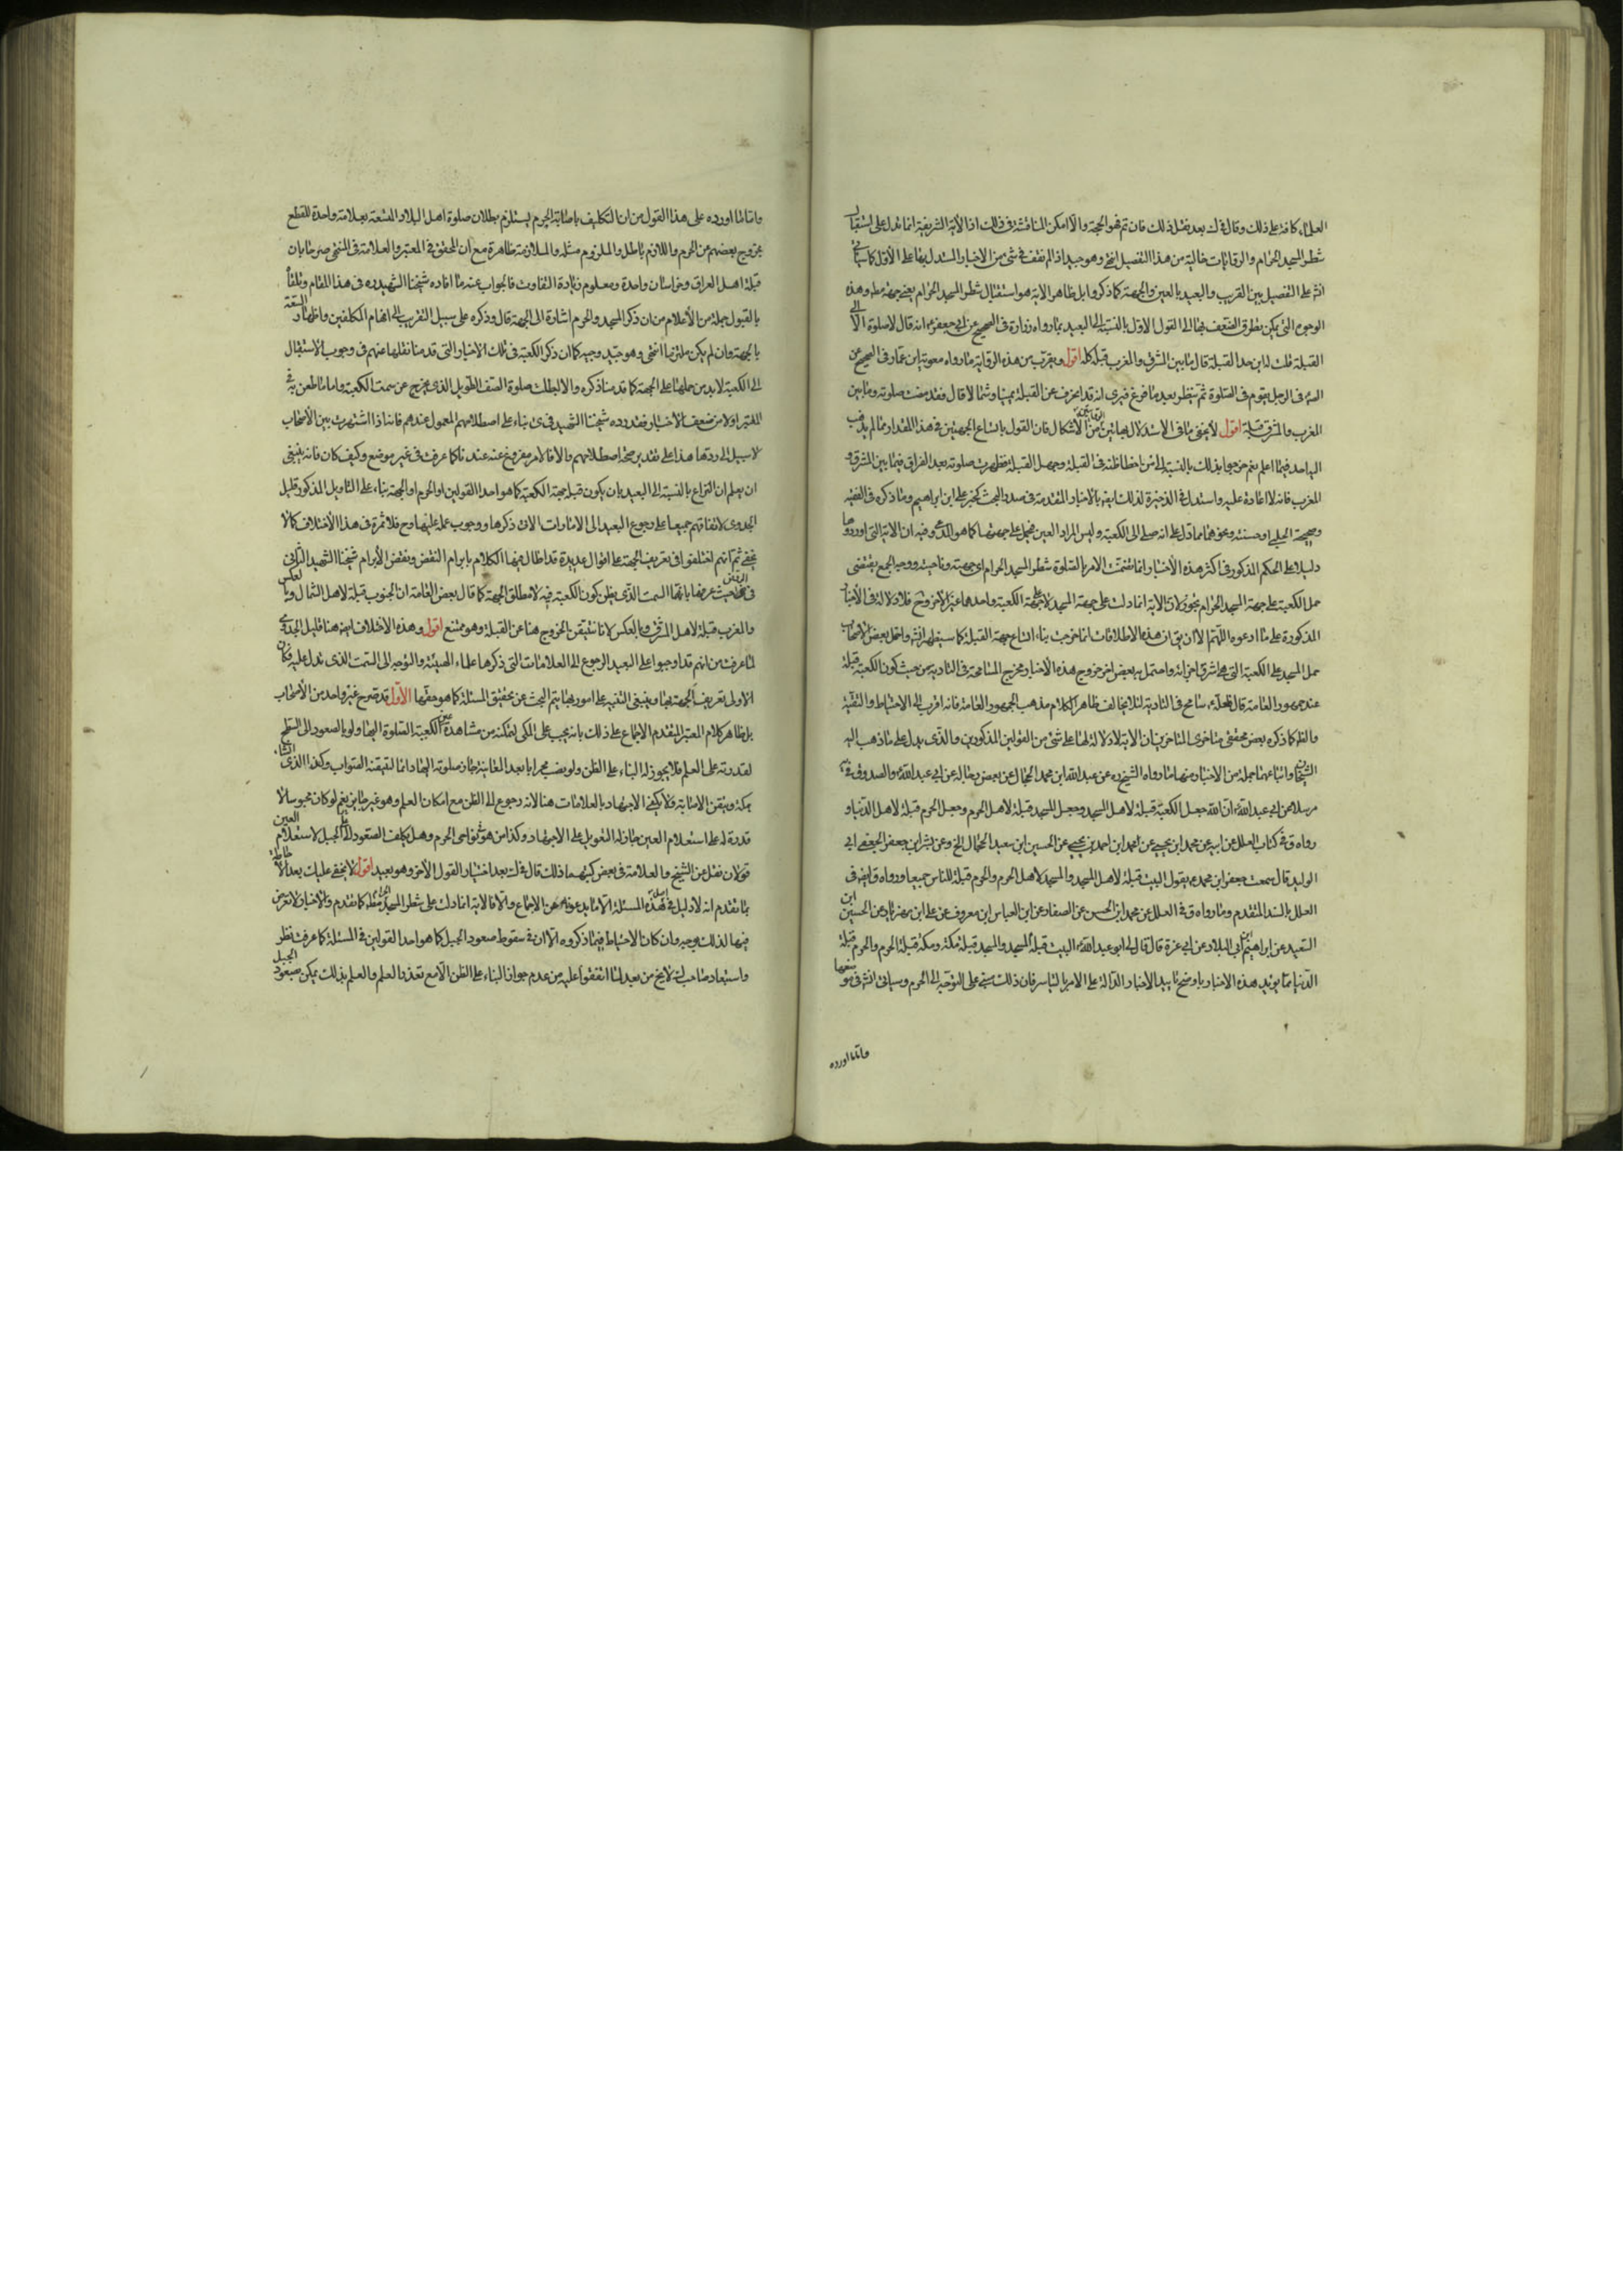 العلماء كافة على ذلك وقال في ك بعد نقل ذلك فان تم فهو الحجة والا امكن المناقشة في ذلك اذ الاية الشريفة انما تدل على استقبال
شطر المسجد الحرام والروايات خالية من هذا التفصيل انتهى وهو جيد اذ لم نقف في شئ من الاخبار المستدل بها على الاول كما سياتي
انش على التفصيل بين القريب والبعيد بالعين والجهة كما ذكروا بل ظاهر الاية هو استقبال شطر المسجد الحرام يعني جهته مطلقا وهذه
الوجوه التي يمكن تطرق الضعف بها الى القول الاول بالنسبة الى البعيد بما رواه زرارة في الصحيح عن ابي جعفر انه قال لا صلوة الا الى
القبلة قلت له اين حد القبلة قال ما بين المشرق والمغرب قبلة كله اقول ويقرب من هذه الرواية ما رواه معوية ابن عمار في الصحيح عن
انه في الرجل يقوم في الصلوة ثم ينظر بعد ما فرغ فيرى انه قد انحرف عن القبلة يمينا وشمالا قال فقد مضت صلوته وما بين
المغرب والمشرق قبلة اقول لا يخفى ما في الاستدلال بهاتين الروايتين من الاشكال فان القول باتساع الجهتين في هذا المقدار مما لم يذهب
اليه احد فيما اعلم نعم خرجوا بذلك بالنسبة الى من اخطأ ظنه في القبلة وجهل القبلة فظهرت صلوته بعد الفراغ فيما بين المشرق و
المغرب فانه لا اعادة عليه واستدل في الذخيرة لذلك ايضا بالاخبار المتقدمة في صدر البحث كخبر علي ابن ابراهيم وما ذكره في الفقيه
وصحيحة الحلبي او حسنته ونحوها مما دل على انه صلى الى الكعبة وليس المراد العين فيحمل على جهتها كما هو المدعى وفيه ان الاية التي اوردوها
دليلا على الحكم المذكور في اكثر هذه الاخبار انما تضمنت الامر بالصلوة شطر المسجد الحرام اي جهته وناحيته ووجه الجمع يقتضي
حمل الكعبة على جهة المسجد الحرام تجوزا لان الاية انما دلت على جهة المسجد لا على جهة الكعبة واحدهما غير الاخر وح فلا دلالة في الاخبار
المذكورة على ما ادعوه اللهم الا ان يق ان هذه الاطلاقات انما خرجت بناء اتساع جهة القبلة كما سيظهر انش واحتمل بعض الاصحاب
حمل المسجد على الكعبة التي هي اشرف اجزائه واحتمل بعض اخر خروج هذه الاخبار مخرج المسامحة في التادية من حيث كون الكعبة قبلة
عند جمهور العامة قال فلعله سامح في التادية لئلا يخالف ظاهر الكلام مذهب الجمهور العامة فانه اقرب الى الاحتياط والتقية
والظ كما ذكره بعض محققي متاخري المتاخرين ان الاية لا دلالة لها على شئ من القولين المذكورين والذي يدل على ما ذهب اليه
الشيخان واتباعهما جملة من الاخبار منها ما رواه الشيخ ره عن عبد الله ابن محمد الحجال عن بعض رجاله عن ابي عبد الله والصدوق في
مرسلا عن ابي عبد الله ان الله جعل الكعبة قبلة لاهل المسجد وجعل المسجد قبلة لاهل الحرم وجعل الحرم قبلة لاهل الدنيا و
رواه ق في كتاب العلل عن ابيه عن محمد ابن يحيى عن محمد ابن احمد بن يحيى عن الحسين ابن سعيد الحجال الخ وعن بشر ابن جعفر الجعفي ابي
الوليد قال سمعت جعفر ابن محمد يقول البيت قبلة لاهل المسجد والمسجد لاهل الحرم والحرم قبلة للناس جميعا ورواه ق ايضا في
العلل بالسند المتقدم وما رواه ق في العلل عن محمد ابن الحسن عن الصفار عن ابن العباس ابن معروف عن علي ابن مهزيار عن الحسين ابن
السعيد عن ابراهيم ابن ابي البلاد عن ابي غرة قال قال لي ابو عبد الله البيت قبلة المسجد والمسجد قبلة مكة ومكة قبلة الحرم والحرم قبلة
الدنيا مما يويد هذه الاخبار باوضح تاييد الاخبار الدالة على الامر بالتياسر فان ذلك يبتني على التوجه الى الحرم وسياتي انش في موضعها
واما ما اورده
واما ما اورده على هذا القول من ان التكليف باصابة الحرم يستلزم بطلان صلوة اهل البلاد المتسعة بعلامة واحدة للقطع
بخروج بعضهم عن الحرم واللازم باطل والملزوم مثله والملازمة ظاهرة مع ان المحقق في المعتبر والعلامة في المنتهى صرحا بان
قبلة اهل العراق وخراسان واحدة ومعلوم زيادة التفاوت فالجواب عنه ما افاده شيخنا الشهيد ره في هذا المقام وتلقاه
بالقبول جملة من الأعلام من ان ذكر المسجد والحرم اشارة الى الجهة قال وذكره على سبيل التقريب الى افهام المكلفين واظهار السعة
بالجهة وان لم يكن ملتزما انتهى وهو جيد وجيه كما ان ذكر الكعبة في تلك الاخبار التي قدمنا نقلها منهم في وجوب الاستقبال
الى الكعبة لا بد من حملها على الجهة كما قدمنا ذكره والا لبطلت صلوة الصف الطويل الذي يخرج عن سمت الكعبة واما ما طعن به في
المعتبر اولا من ضعف الاخبار فقد رده شيخنا الشهيد في ى بناء على اصطلاحهم المعمول عندهم فانها اذا اشتهرت بين الاصحاب
لا سبيل الى ردها هذا على تقدير صحة اصطلاحهم والا فالامر مفروغ عنه عندنا كما عرفت في غير موضع وكيف كان فانه ينبغي
ان يعلم ان النزاع بالنسبة الى البعيد بان يكون قبلة جهة الكعبة كما هو احد القولين او الحرم او الجهة بناء على التاويل المذكور قليل
الجدوى لاتفاقهم جميعا على رجوع البعيد الى الامارات الاتي ذكرها ووجوب عمله عليها وح فلا ثمرة في هذا الاختلاف كما لا
يخفى ثم انهم اختلفوا في تعريف الجهة على اقوال عديدة قد اطال فيها الكلام بابرام النقض ونقض الابرام شيخنا الشهيد الثاني
في الروض حيث عرفها بانها السمت الذي يظن كون الكعبة فيه لا مطلق الجهة كما قال بعض العامة ان الجنوب قبلة لاهل الشمال وبالعكس
والمغرب قبلة لاهل المشرق وبالعكس لانا نتيقن بالخروج هنا عن القبلة وهو ممتنع اقول وهذه الاختلاف ايضا هنا قليل الجدوى
لما عرفت من انهم قد اوجبوا على البعيد الرجوع الى العلامات التي ذكرها علماء الهيئة والتوجه الى السمت الذي تدل عليه فكان
الاولى تعريف الجهة بها وينبغي التنبيه على امور بها يتم البحث عن تحقيق المسئلة كما هو حقها الاول قد صرح غير واحد من الاصحاب
بل ظاهر كلام المعتبر المتقدم الاجماع على ذلك بانه يجب على المكي لتمكنه من مشاهدة عين الكعبة الصلوة اليها ولو بالصعود الى السطح
لقدرته على العلم فلا يجوز له البناء على الظن ولو نصب محرابا بعد المعاينة جاز صلوته اليها دائما لتيقنه الصواب وكذا الذي نشاء
بمكة ويتيقن الاصابة ولا يكفي الاجتهاد بالعلامات هنا لانه رجوع الى الظن مع امكان العلم وهو غير جايز نعم لو كان محبوسا لا
قدرة له على استعلام العين جاز له التعويل على الاجتهاد وكذا من هو في نواحي الحرم وهل يكلف الصعود الى الجبل لاستعلام العين
قولان نقل عن الشيخ والعلامة في بعض كتبهما ذلك قال في ك بعد اختيار القول الاخر وهو بعيد اقول لا يخفى عليك بعد الاحاطة
بما تقدم انه لا دليل في هذه المسئلة الا ما يدعونه من الاجماع والا فالاية انما دلت على شطر المسجد الحرام مطلقا كما تقدم والاخبار لا تعرض
فيها لذلك بوجه وان كان الاحتياط فيما ذكروه الا ان في سقوط صعود الجبل كما هو احد القولين في المسئلة كما عرفت نظر
واستبعاد صاحب ك لا يخ من بعد لما اتفقوا عليه من عدم جواز البناء على الظن الا مع تعذر العلم والعلم بذلك يمكن بصعود الجبل